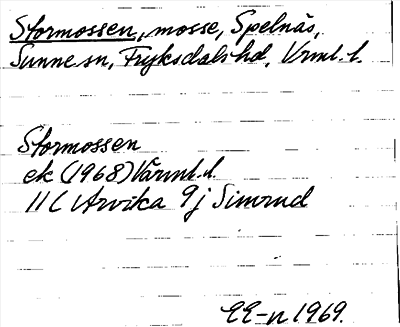 Stormossen, mosse, Spelnäs,
Sunne sn, Fryksdals hd, Vrml. l.
Stormossen
ek (1968) Värml. l.
11 C Arvika 9 j Simrud
EE-n 1969.